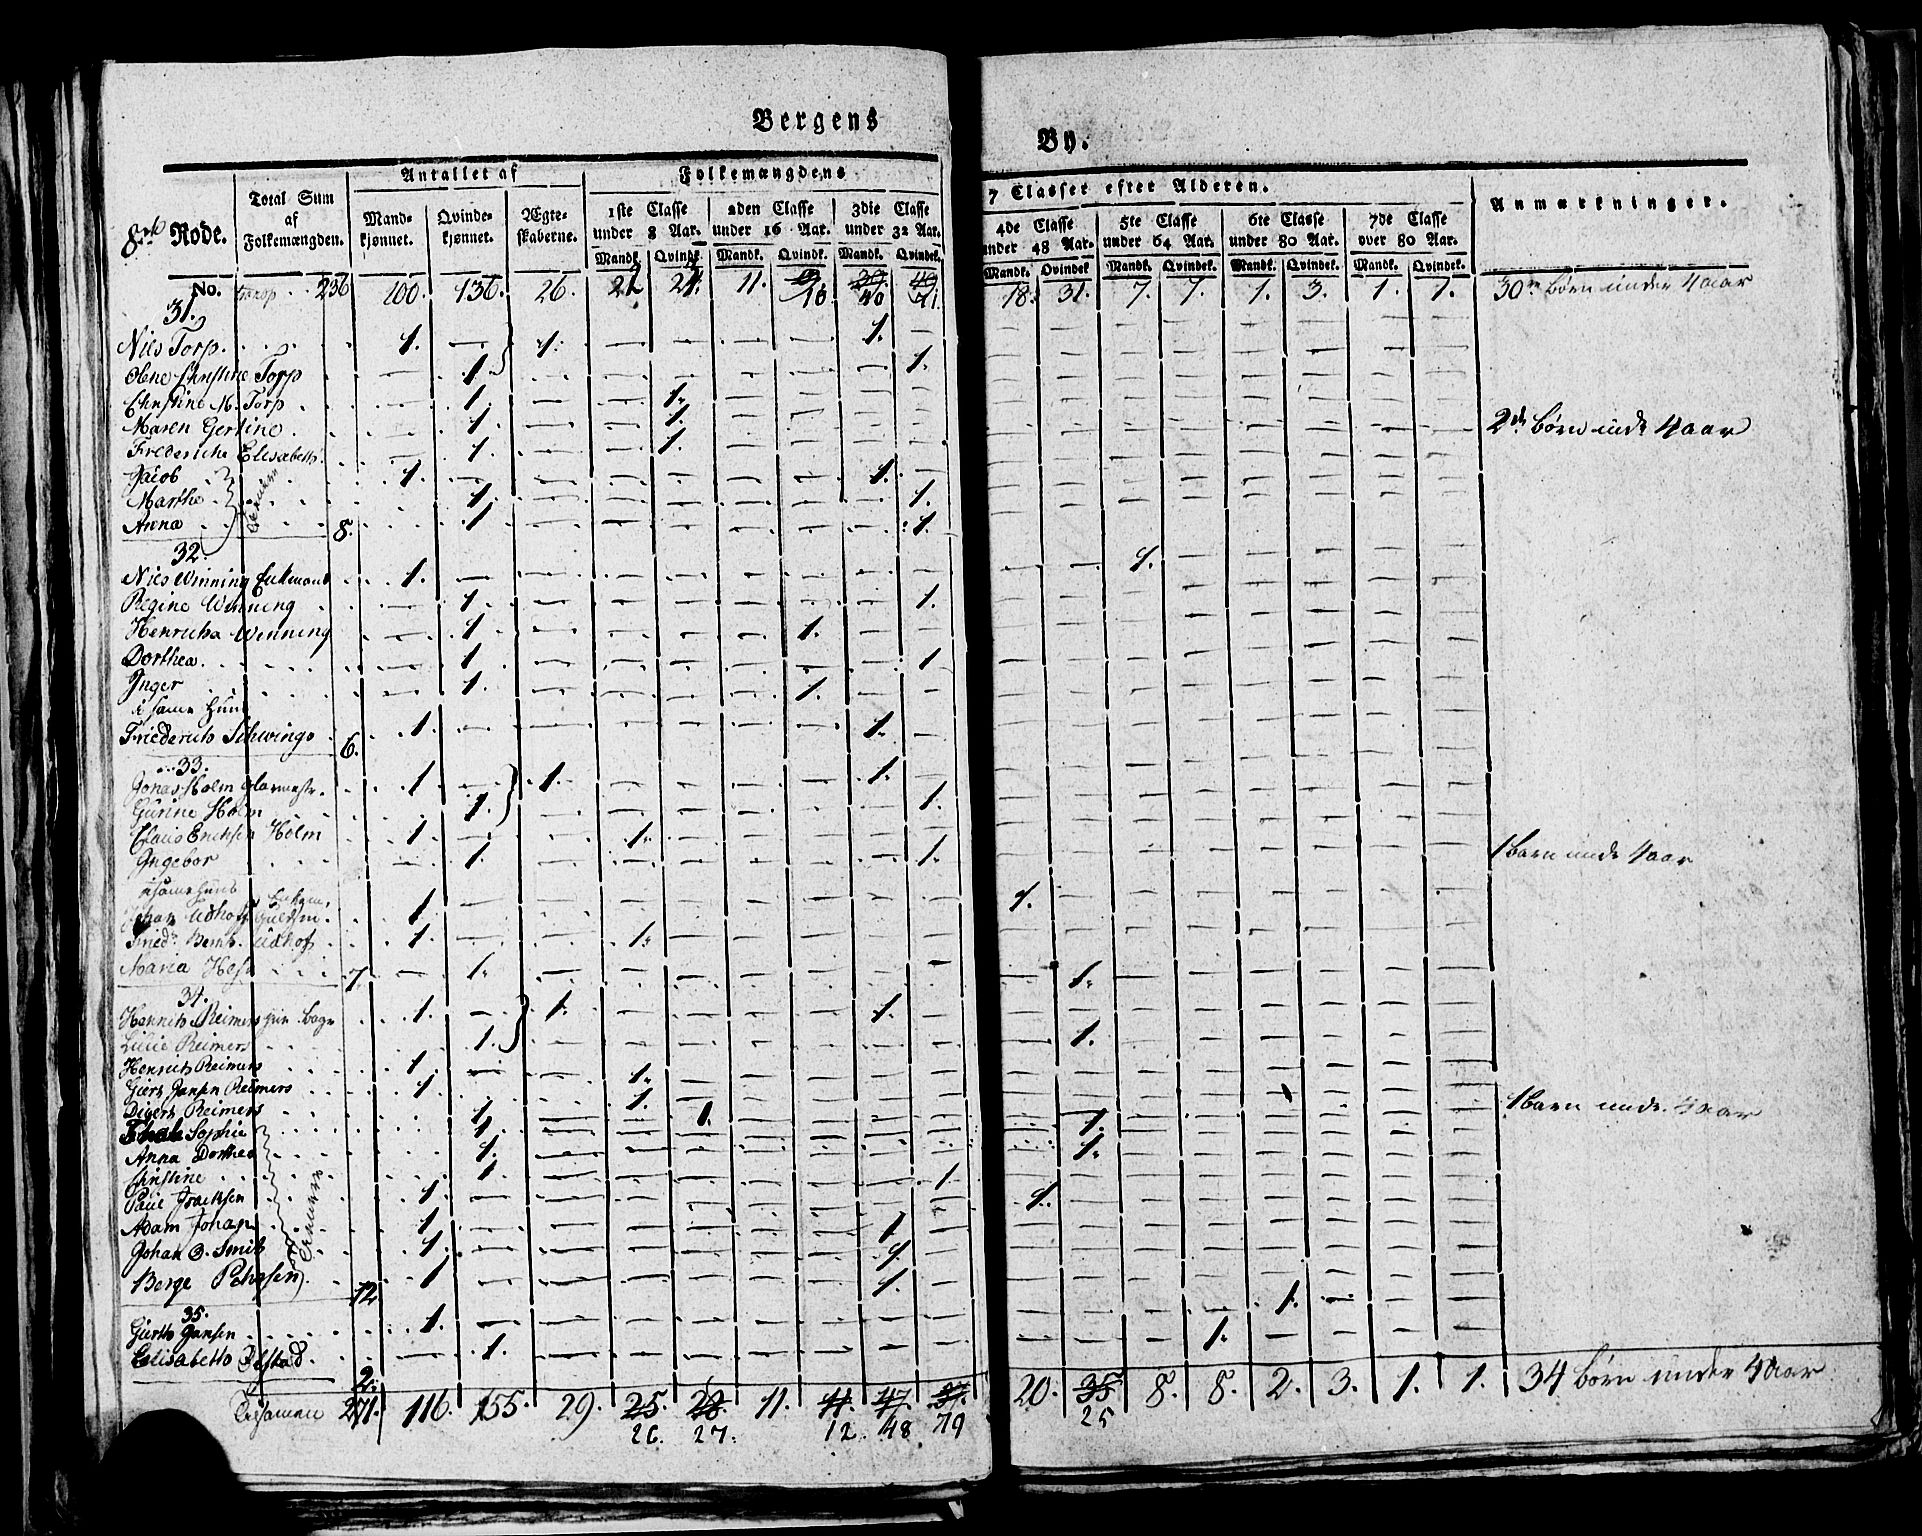 Bergens By.
8de Rode.
Total Sum af Folkemængden.
Antallet af
Mandkjønnet. Qvindekjønnet. Ægteskaberne.
Folkemængdens 7 Classer efter Alderen.
1ste Classe under 8 Aar. 2den Classe under 16 Aar. 3die Classe under 32 Aar. 4de Classe under 48 Aar. 5te Classe under 64 Aar. 6te Classe under 80 Aar. 7de Classe over 80 Aar.
Anmærkninger.
Mandk. Qvindk. Mandk. Qvindk. Mandk. Qvindek. Mandk. Qvindek Mandk. Qvindek. Mandk. Qvindek. Mandk. Qvindek.
No. 236 100. 136. 26. 11. 10 40 41. 18. 31. 7. 7. 1. 3. 1. 1. 30 børn under 4 aar
31.
Nils Torp. 1. — 1. — — — — 1. —
Olene Christine Torp 1. 1.
Christine M. Torp 1. 1.
Maren Gertine 1. 1. 2de børn unde 4 aar
Frederiche Elisabeth 1. 1.
Jacob 1. 1.
Marthe 1. 1.
Anna 8. 1. 1.
32.
Nils Winning Enkemand 1. 1.
Regine Winning 1. 1.
Henricha Winning 1. 1.
Dorthea 1. 1
Inger 1. 1.
i same Huus
Friederich Schwingo 6. 1. 1.
33.
Jonas Holm Glarmestr. 1. 1. 1.
Gurine Holm 1. 1.
Claus Erichsen Holm 1. 1. 1 barn unde 4 aar
Ingebor 1. 1.
i same Huus
Johan Udhoff Enkem. Guldsm. 1. 1.
Fried. Bernh. Udhof 1. 1.
Maria 7. 1. 1.
34.
Henrich Reimers 1. 1. 1.
Lucie Reimers 1. 1.
Henrich Reimers 1. 1.
Giert Jansen Reimers 1. 1. 1 barn unde 4 aar
Reimers 1. 1.
Sophie 1. 1.
Anna Dorthea 1. 1.
Christine 1. 1
1. 1.
Adam Johan 1. 1
Johan Smith 1. 1
Berge 12 1 1.
35.
Gierth Jansen 1. 1.
Elisabeth 2. 1. 1.
Tilsamen 271. 116. 155. 29. 25. 28. 11. 11. 47 37. 20. 35 8. 8. 2. 3. 1. 1. 34 børn under 4 Aar
26 27. 12 48 49 25